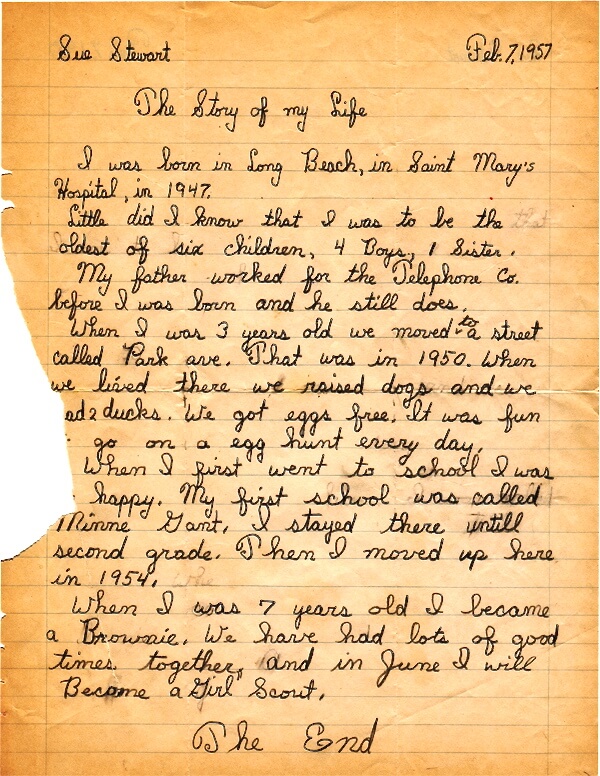 Sue Stewart Feb. 7, 1957
The Story of my Life
I was born in Long Beach, in Saint Mary's
Hospital, in 1947.
Little did I know that I was to be the that
oldest of six children, 4 Boys, 1 Sister.
My father worked for the Telephone Co.
before I was born and he still does.
When I was 3 years old we moved to a street
called Park ave. That was in 1950. When
we lived there we raised dogs and we
ad 2 ducks. We got eggs free. It was fun
go on a egg hunt every day.
When I first went to school I was
happy. My first school was called
Minne Gant. I stayed there untill
second grade. Then I moved up here
in 1954. Whe
When I was 7 years old I became
a Brownie. We have had lots of good
times together, and in June I will
Become a "Girl" Scout.
The End